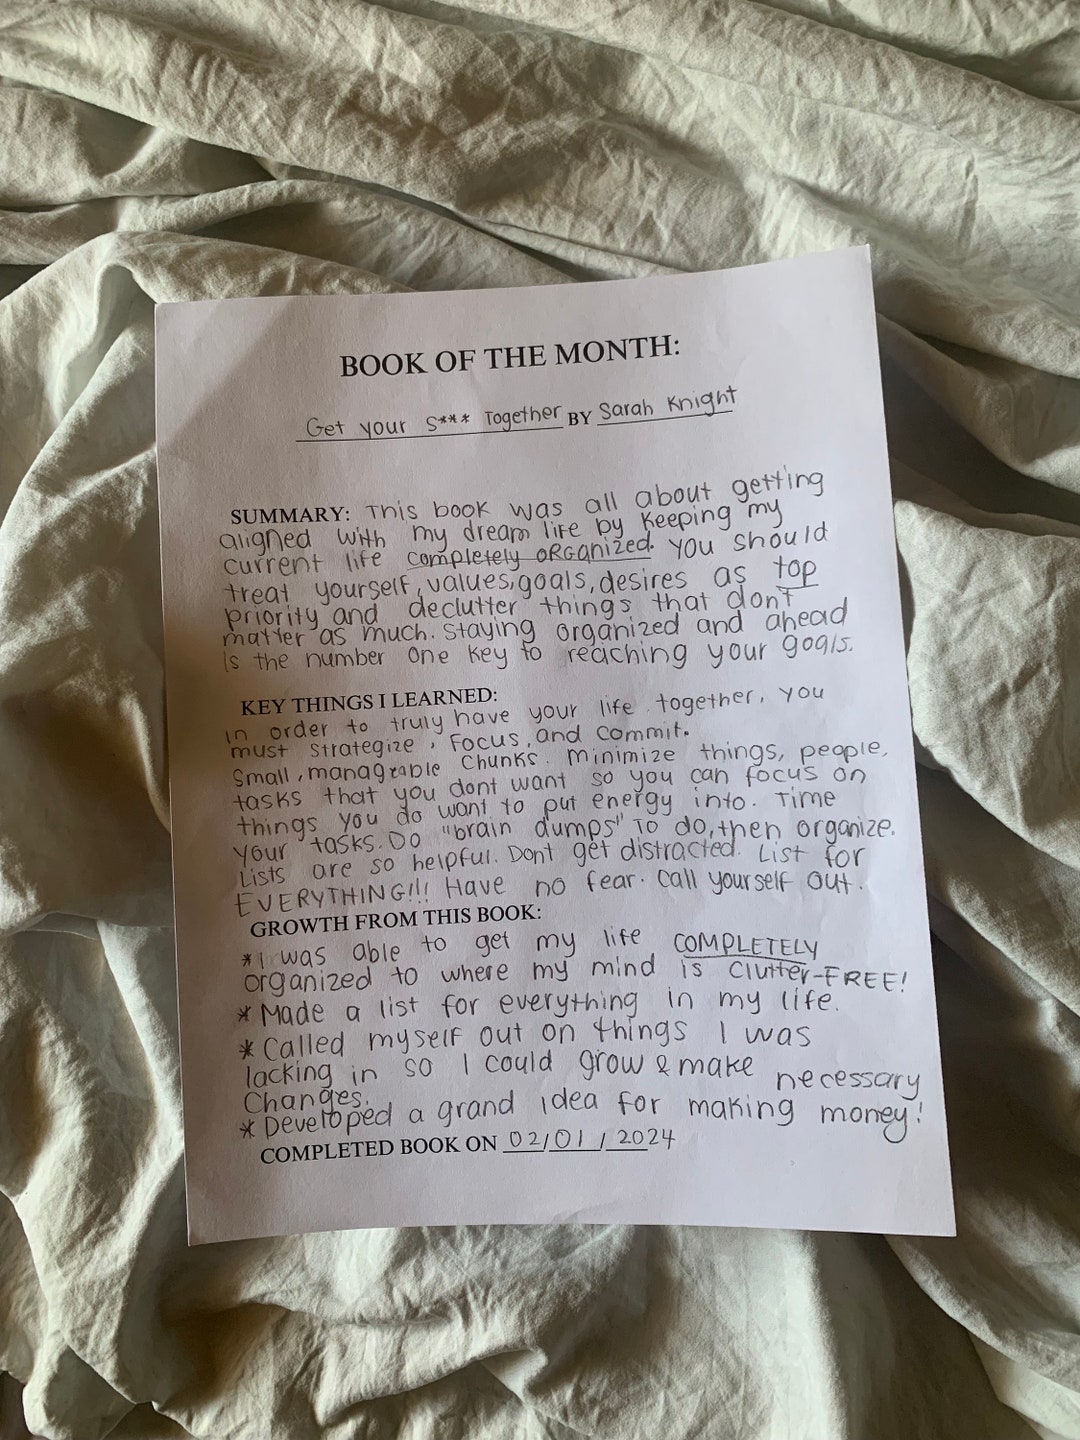 BOOK OF THE MONTH:
Get your S*** Together BY Sarah Knight
SUMMARY: This book was all about getting
aligned with my dream life by keeping my
current life completely ORGanized. You should
treat yourself, values, goals, desires as top
priority and declutter things that dont
matter as much. Staying organized and ahead
is the number one key to reaching your goals.
KEY THINGS I LEARNED:
in order to truly have your life together, you
must strategize, focus, and commit.
Small, managable chunks. Minimize things, people,
tasks that you dont want so you can focus on
things you do want to put energy into. Time
your tasks. Do "brain dumps" To do, then organize.
Lists are so helpful. Dont get distracted. List for
EVERYTHING!!! Have no fear. Call yourself out.
GROWTH FROM THIS BOOK:
*I was able to get my life COMPLETELY
organized to where my mind is clutter-FREE!
* Made a list for everything in my life.
* Called myself out on things I was
lacking in so I could grow & make necessary
Changes.
* Developed a grand idea for making money!
COMPLETED BOOK ON 02/01/2024